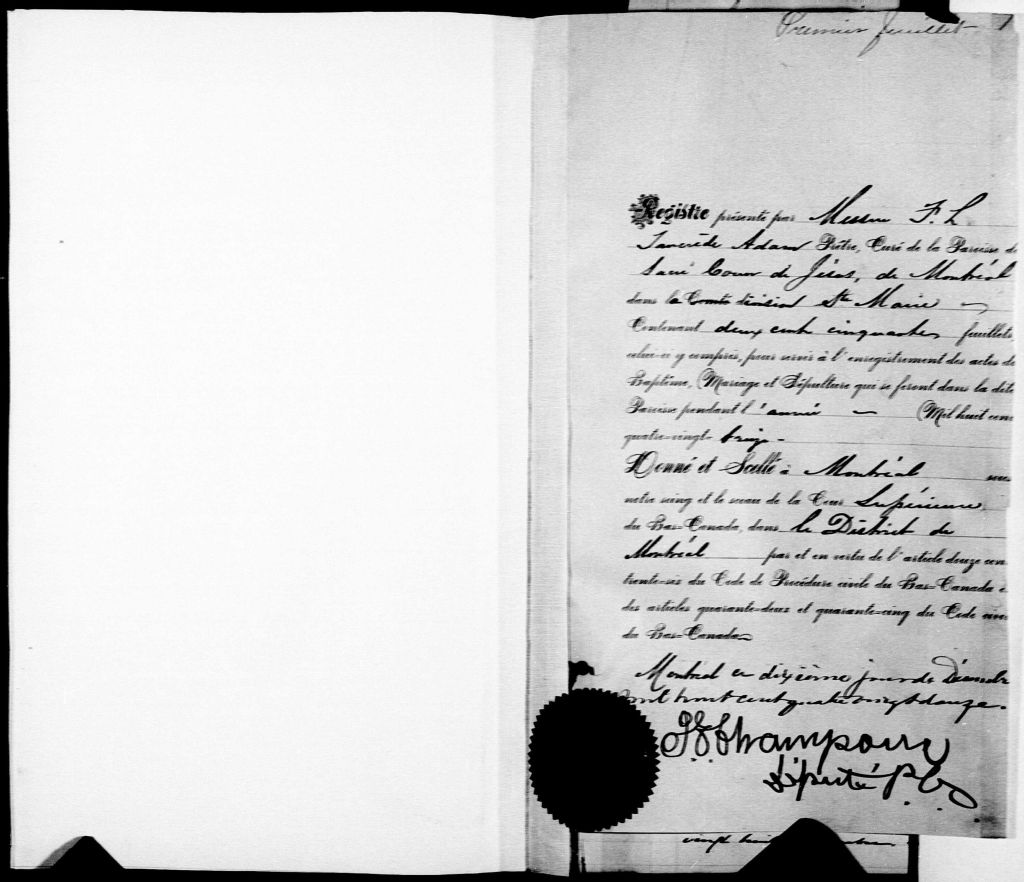 Premier feuillet
Registre présenté par Messire F. L
Tancrède Adam Prêtre, Curé de la Paroisse du
Sacré Coeur de Jésus, de Montréal
dans la Comté division Ste Marie
Contenant deux cent cinquante feuillets,
celui-ci y compris, pour servir à l'enregistrement des actes de
Baptême, Mariage et Sépulture qui se feront dans la dite
Paroisse pendant l'année Mil huit cent
quatre-vingt- treize -
Donné et Scellé à Montréal sous
notre seing et le sceau de la Cour Supérieure
du Bas-Canada, dans le District de
Montréal par et en vertu de l'article douze cent
trente-six du Code de Procédure civile du Bas-Canada e
des articles quarante-deux et quarante-cinq du Code civil
du Bas-Canada
Montréal ce dixième jour de Décembre
mil huit cent quatre vingt douze.
Champoux
Député P.
vingt huit